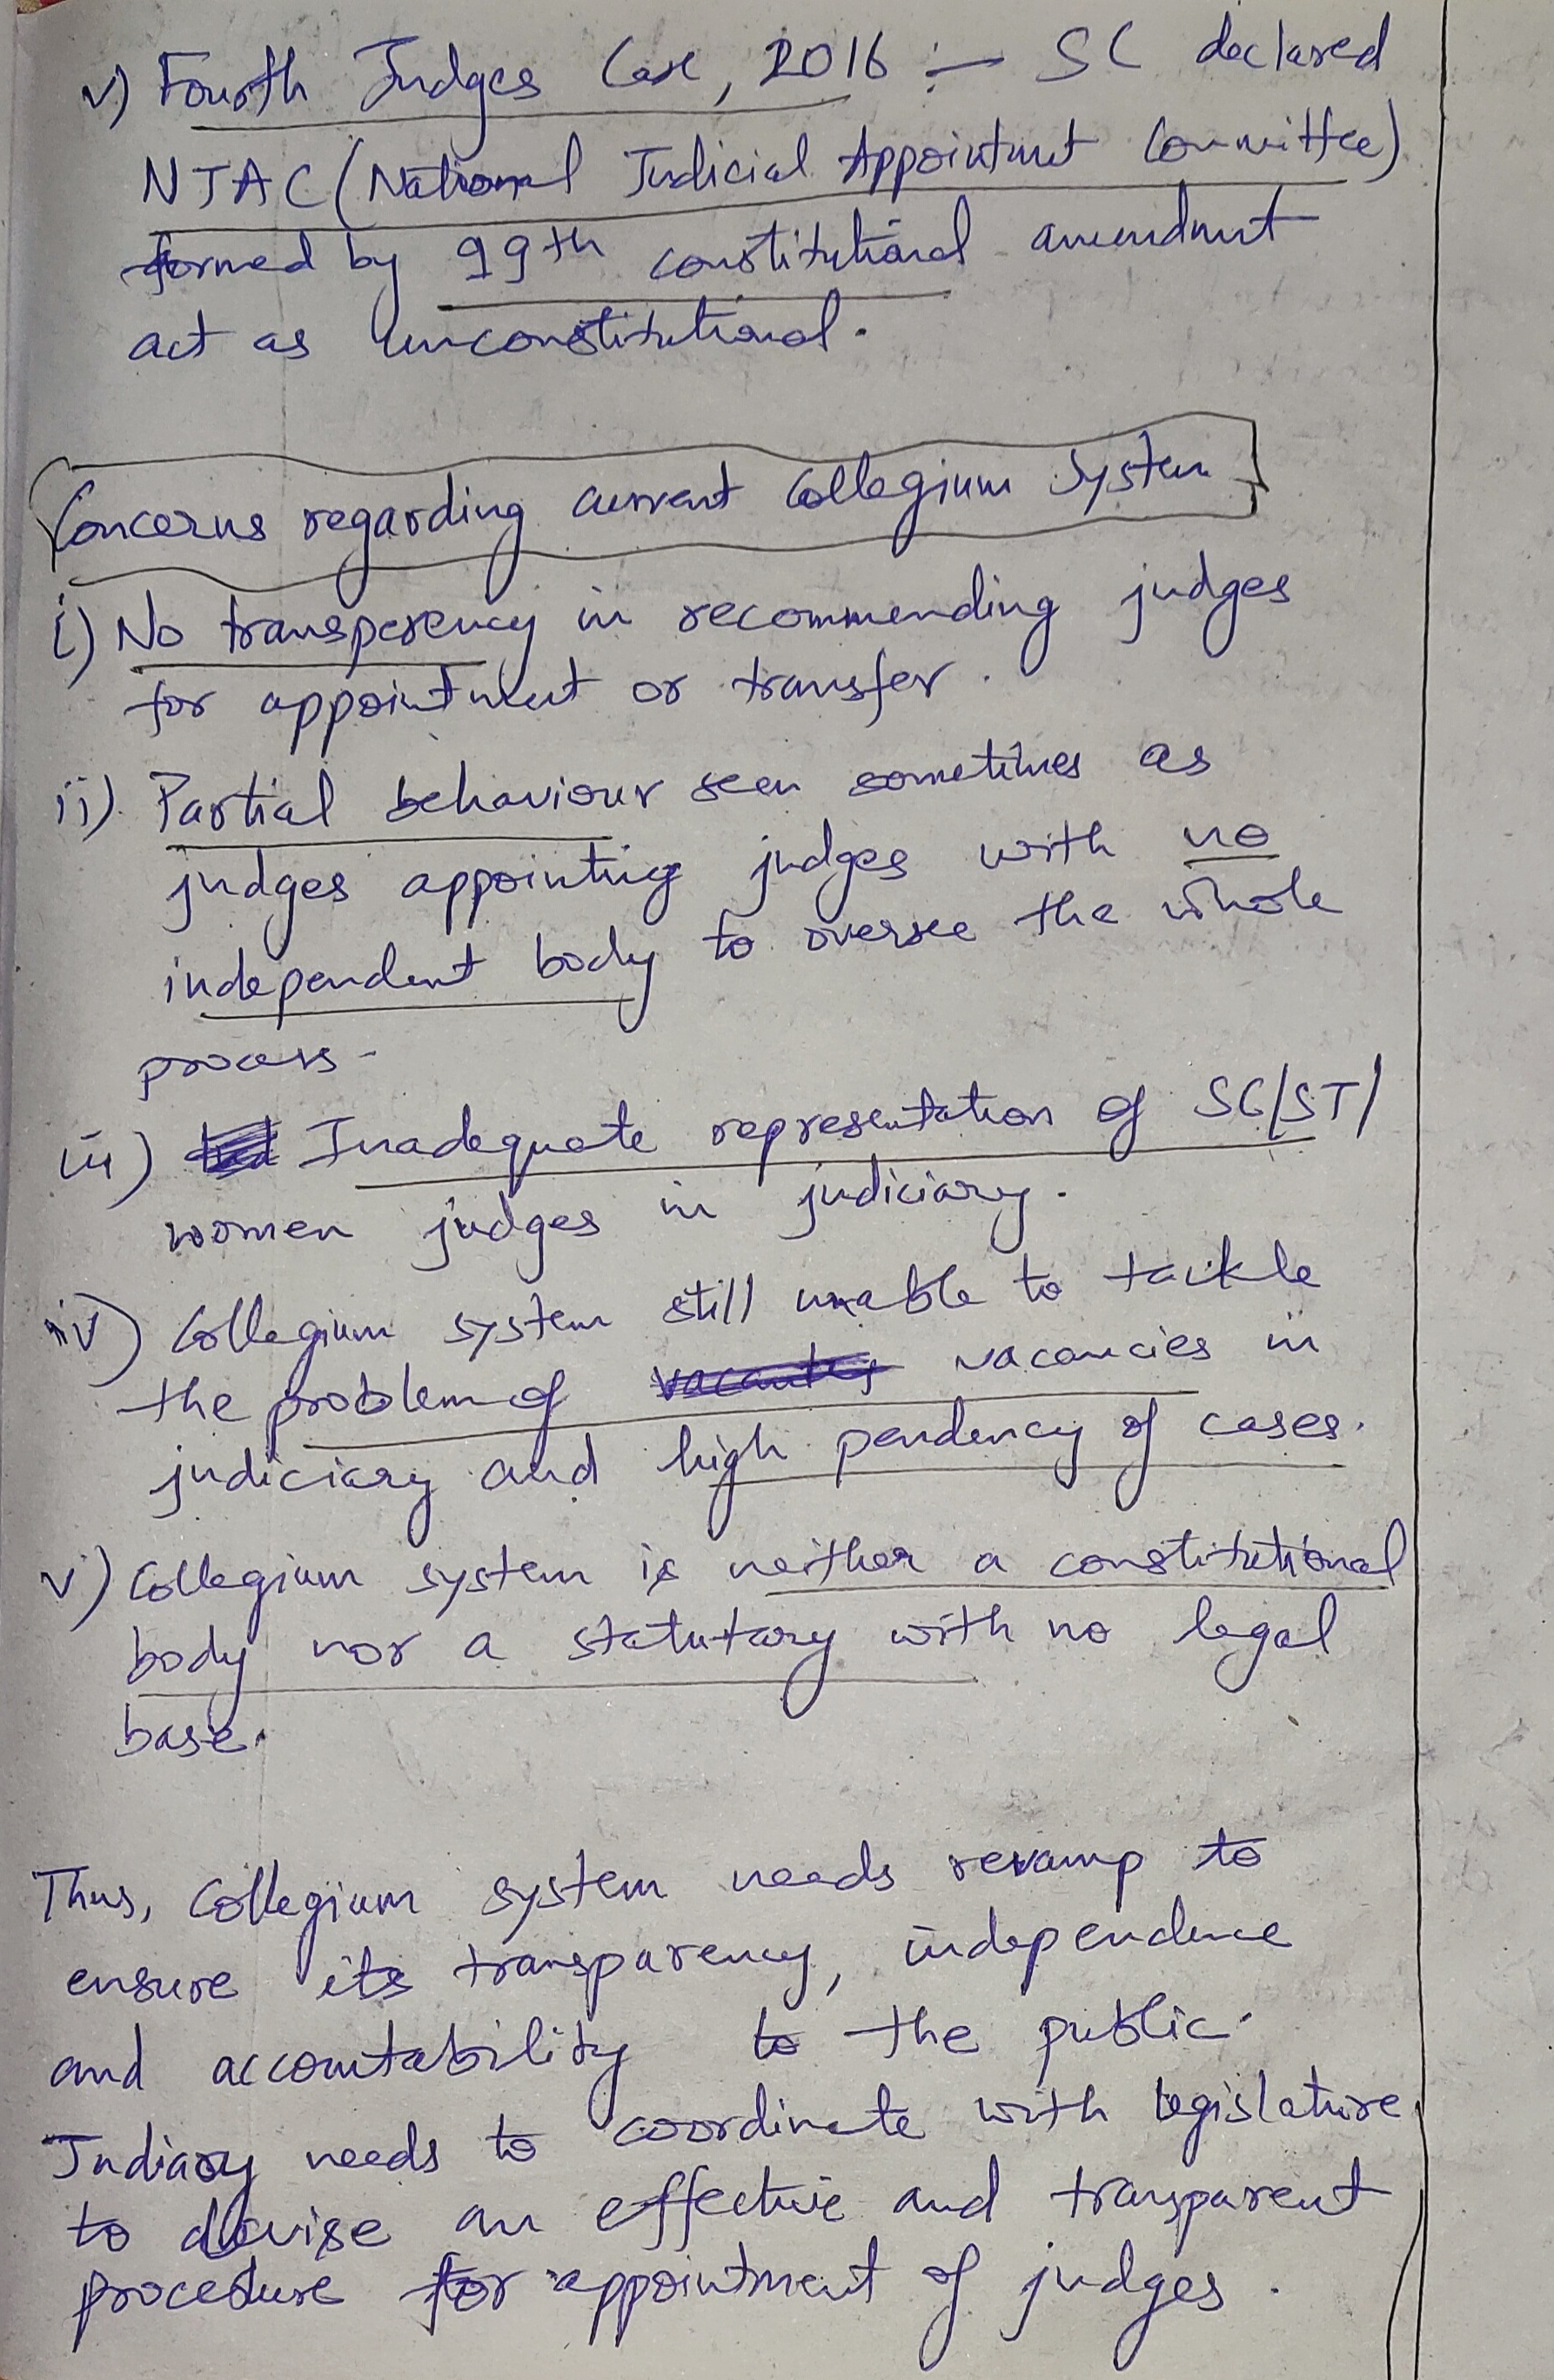 v) Fourth Judges Case, 2016 :- SC declared
NJAC (National Judicial Appointment Committee)
formed by 99th constitutional amendment
act as unconstitutional.
Concerns regarding current Collegium System
i) No transperency in recommending judges
for appointment or transfer.
ii) Partial behaviour seen sometimes as
judges appointing judges with no
independent body to oversee the whole
process.
iii) Inadequate representation of SC/ST/
women judges in judiciary.
iv) Collegium system still unable to tackle
the problem of vacancies in
judiciary and high pendency of cases.
v) Collegium system is neither a constitutional
body nor a statutary with no legal
base.
Thus, Collegium system needs revamp to
ensure its transparency, independence
and accountability to the public.
Judiary needs to coordinate with legislature
to devise an effective and transparent
procedure for appointment of judges.